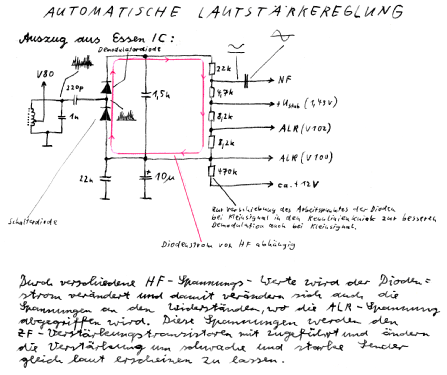 AUTOMATISCHE LAUTSTÄRKEREGLUNG
Auszug aus Essen IC:
Demodulatordiode
V80
220p
1n
1,5n
22k
NF
4,7k
+Ustab (1,43V)
8,2k
ALR (V102)
8,2k
ALR (V100)
22n
10µ
+
470k
ca. +12V
Schaltdiode
Zur Verschiebung des Arbeitspunktes der Dioden
bei Kleinsignal in den Kennlinienknick zur besseren
Demodulation auch bei Kleinsignal.
Diodenstrom von HF abhängig
Durch verschiedene HF-Spannungs-Werte wird der Dioden-
strom verändert und damit verändern sich auch die
Spannungen an den Widerständen, wo die ALR-Spannung
abgegriffen wird. Diese Spannungen werden den
ZF-Verstärkungstransistoren mit zugeführt und ändern
die Verstärkung um schwache und starke Sender
gleich laut erscheinen zu lassen.